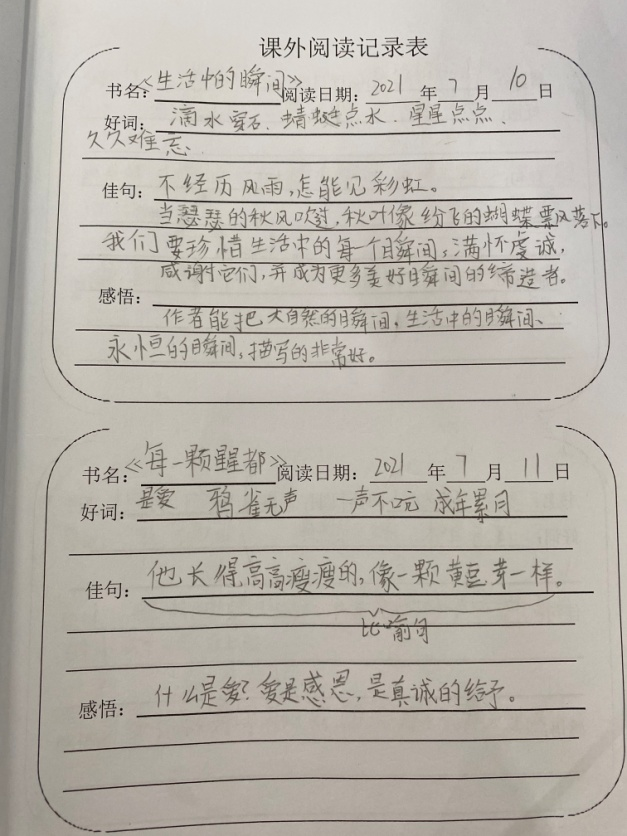 课外阅读记录表
书名:《生活中的瞬间》阅读日期:2021年7月10日
好词:滴水穿石、蜻蜓点水、星星点点、
久久难忘、
佳句:不经历风雨,怎能见彩虹。
当瑟瑟的秋风吹过,秋叶像纷飞的蝴蝶飘落下。
我们要珍惜生活中的每一个瞬间,满怀虔诚,
感谢它们,并成为更多美好瞬间的缔造者。
感悟:
作者能把大自然的瞬间,生活中的瞬间、
永恒的瞬间,描写的非常好。
书名:《每一颗星都阅读日期:2021年7月11日
好词:是爱》 鸦雀无声 一声不吭 成年累月
佳句:他长得高高瘦瘦的,像一颗黄豆芽一样。
比喻句
感悟:什么是爱?爱是感恩,是真诚的给予。